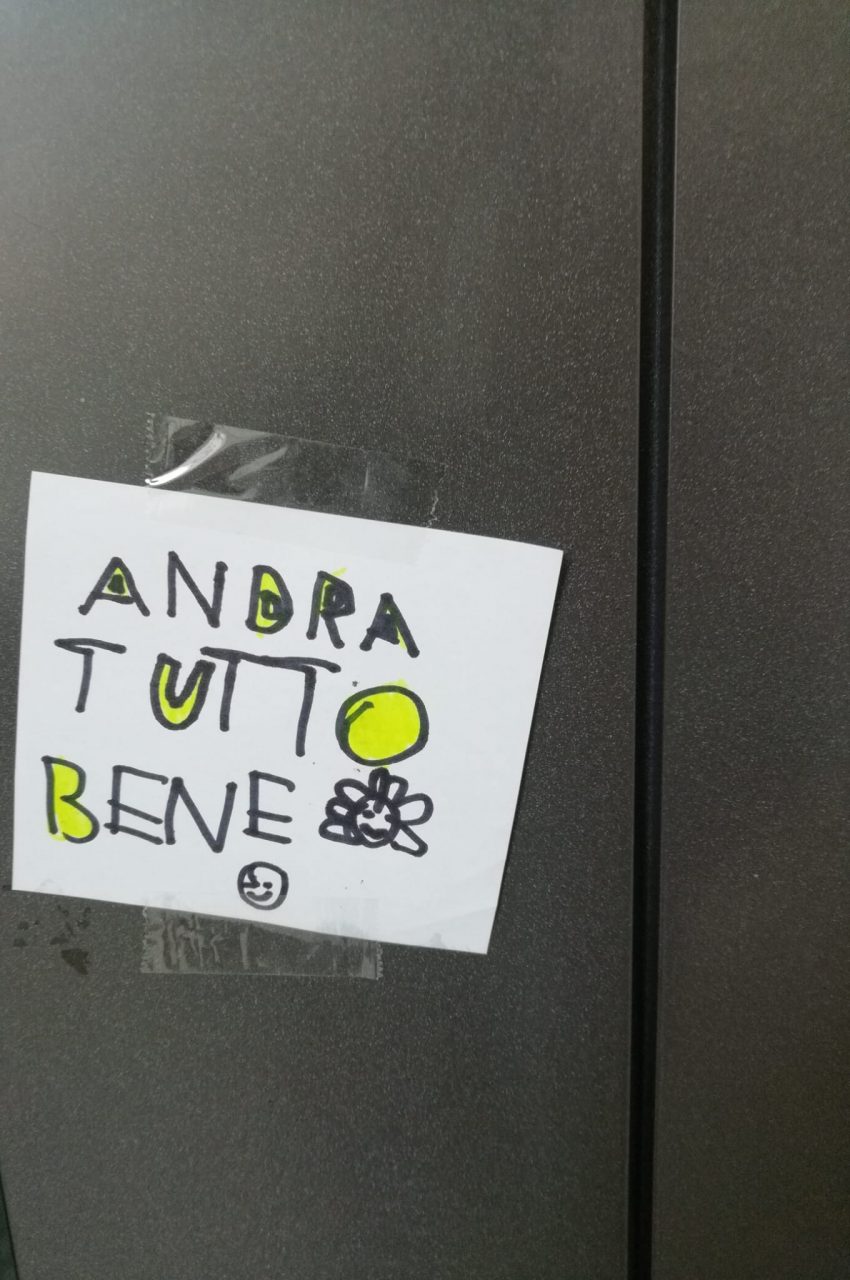 ANDRA
TUTTO
BENE